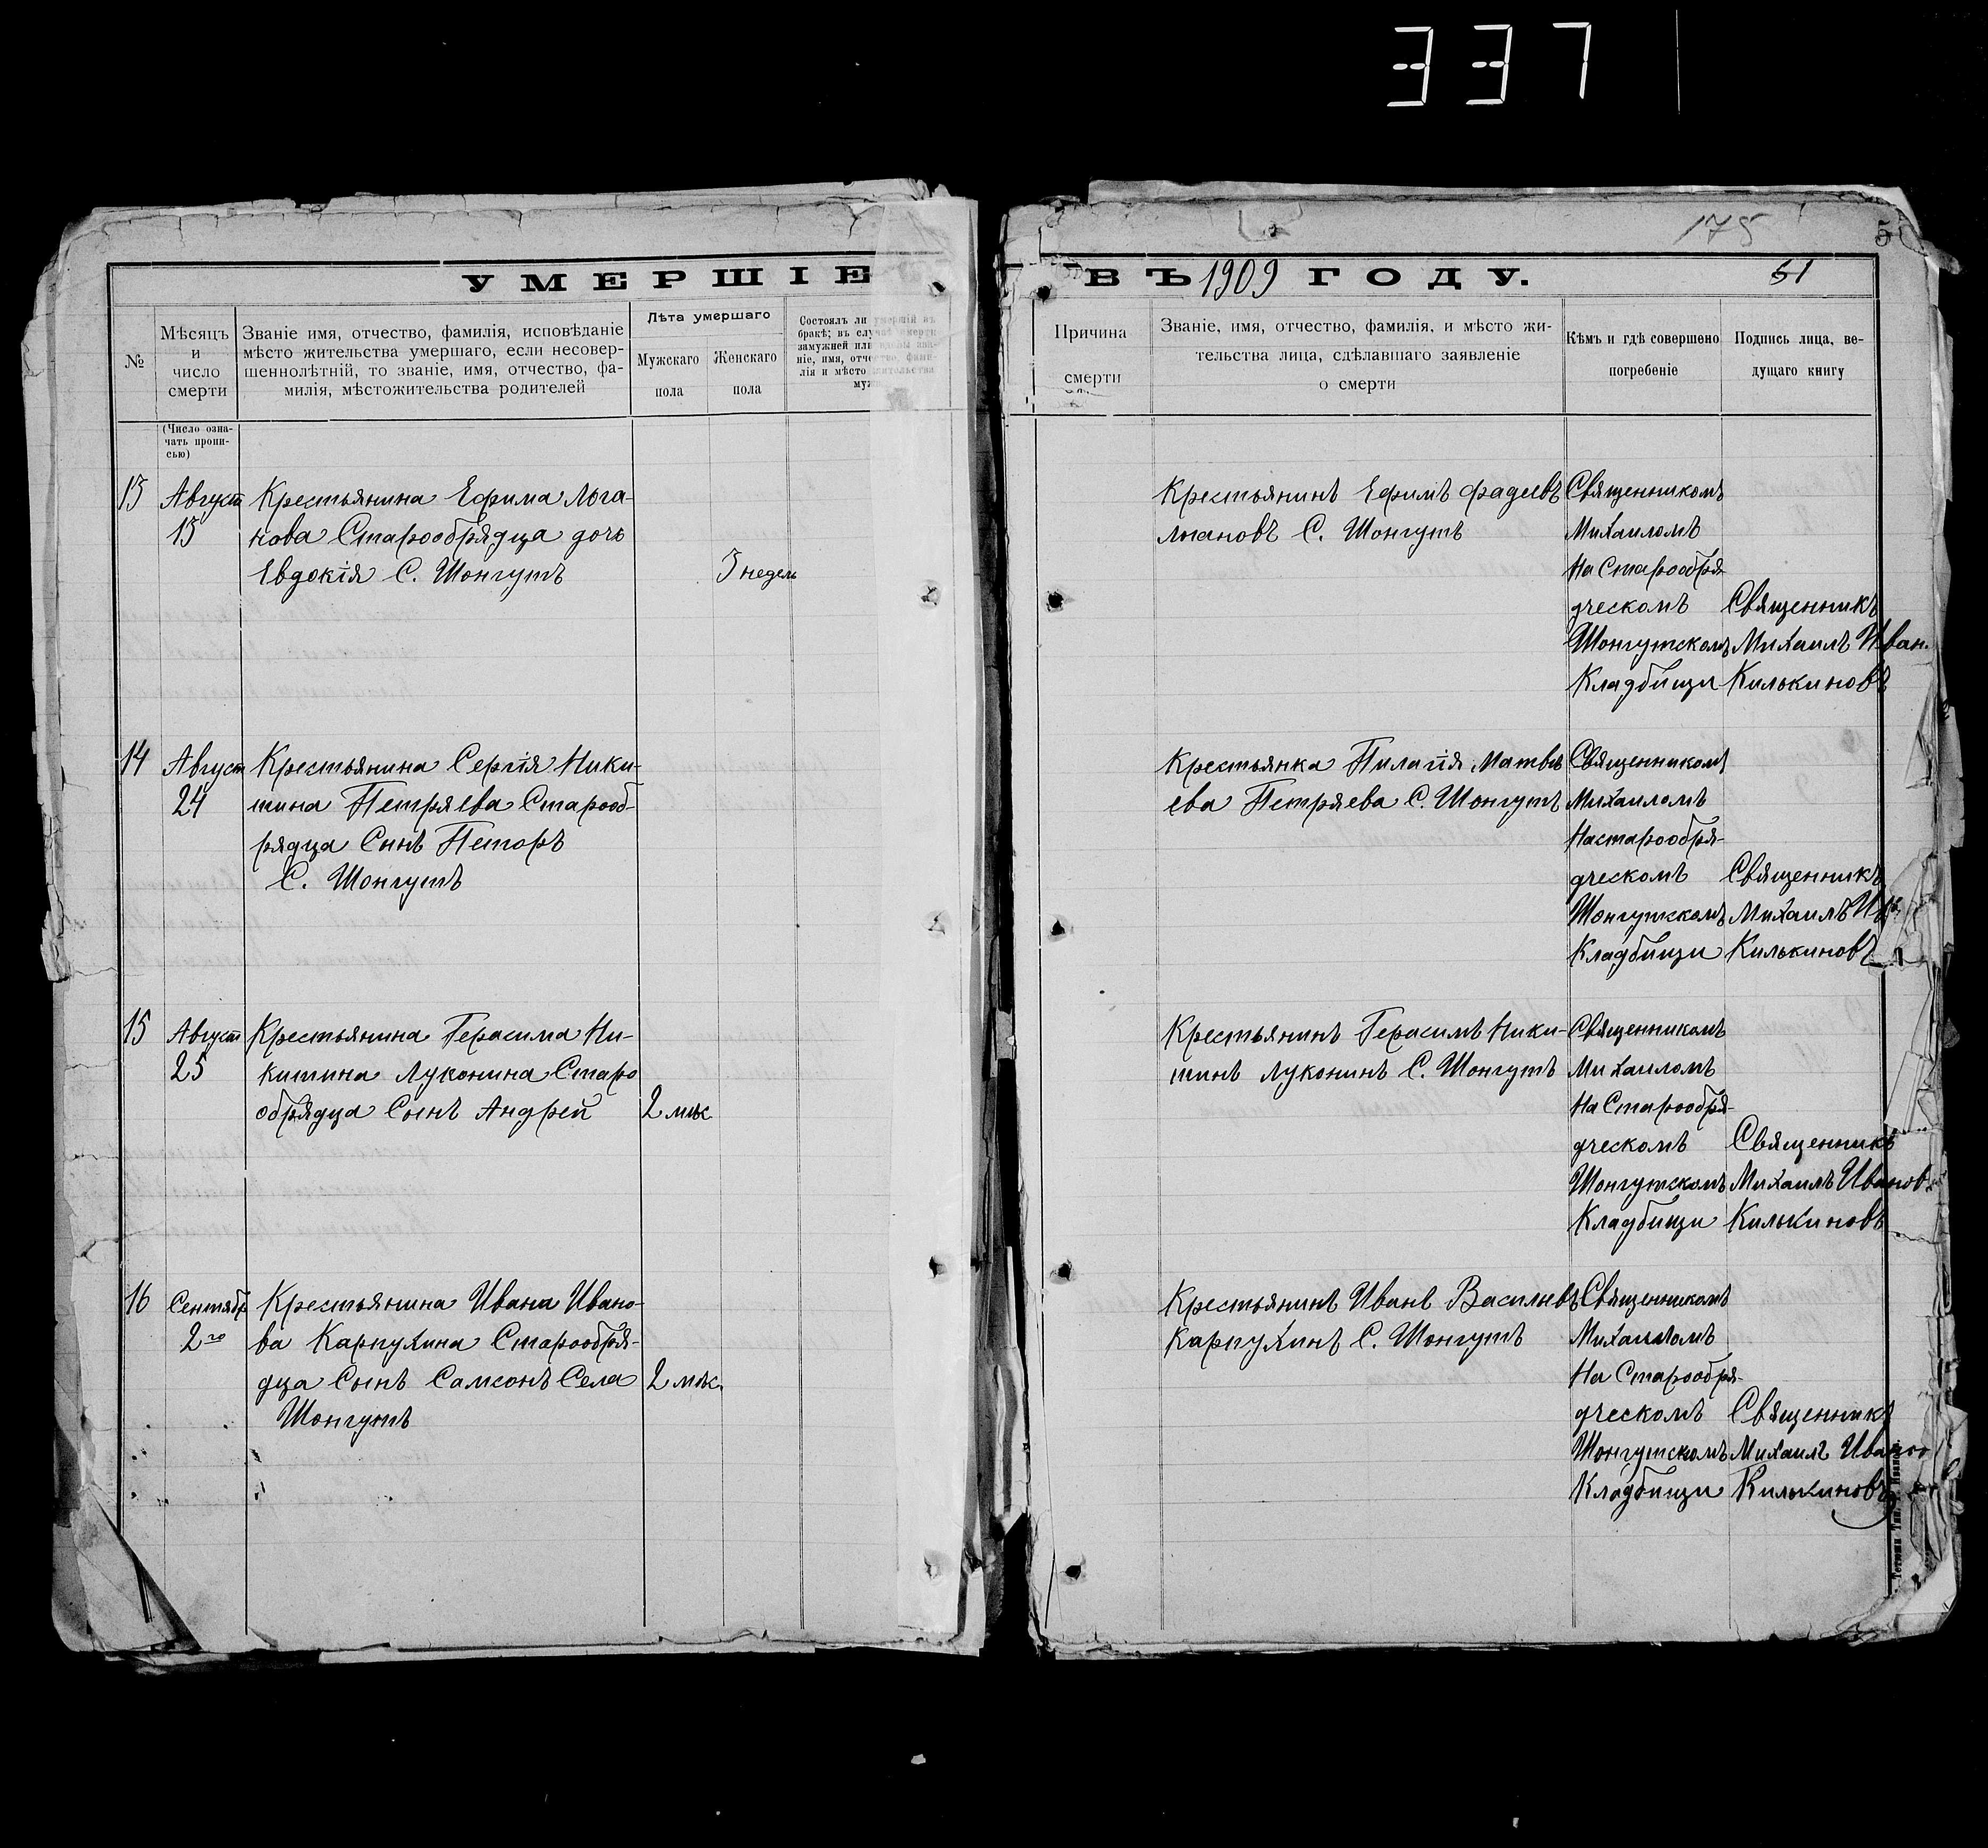 337
175
5
УМЕРШІЕ ВЪ 1909 ГОДУ.
51
№
Мѣсяцъ
и
число
смерти
Званіе имя, отчество, фамилія, исповѣданіе
мѣсто жительства умершаго, если несовер-
шеннолѣтній, то званіе, имя, отчество, фа-
милія, мѣстожительства родителей
Лѣта умершаго
Мужскаго
пола
Женскаго
пола
Состоялъ ли умершій въ
бракѣ; въ случаѣ смерти
замужней или вдовы зва-
ніе, имя, отчество, фами-
лія и мѣсто жительства
муж
Причина
смерти
Званіе, имя, отчество, фамилія, и мѣсто жи-
тельства лица, сдѣлавшаго заявленіе
о смерти
Кѣмъ и гдѣ совершено
погребеніе
Подпись лица, ве-
дущаго книгу
(Число озна-
чать пропи-
сью)
13
Август
13
Крестьянина Ефима Лога-
нова Старообрядца дочь
Евдокія С. Шонгутъ
3 недель
Крестьянинъ Ефимъ Фадеевъ
Логановъ С. Шонгутъ
Священникомъ
Михаиломъ
На Старообря-
дческомъ
Шонгутскомъ
Кладбищи
Священникъ
Михаилъ Иван.
Килькиновъ
14
Август
24
Крестьянина Сергія Ники-
тина Петряева Старооб-
рядца Сынъ Петоръ
С. Шонгутъ
Крестьянка Пилагія Матвѣ
ева Петряева С. Шонгутъ
Священникомъ
Михаиломъ
На старообря-
дческомъ
Шонгутскомъ
Кладбищи
Священникъ
Михаилъ Ив
Килькиновъ
15
Август
25
Крестьянина Герасима Ни-
китина Луконина Старо
обрядца Сынъ Андрей
2 мѣс
Крестьянинъ Герасимъ Ники-
тинъ Луконинъ С. Шонгутъ
Священникомъ
Михаиломъ
На Старообря-
дческомъ
Шонгутскомъ
Кладбищи
Священникъ
Михаилъ Иванов
Килькиновъ
16
Сентябр
2го
Крестьянина Ивана Ивано-
ва Карпухина Старообря-
дца Сынъ Самсонъ Села
Шонгутъ
2 мѣс.
Крестьянинъ Иванъ Васильевъ
Карпухинъ С. Шонгутъ
Священникомъ
Михаиломъ
На Старообря-
дческомъ
Шонгутскомъ
Кладбищи
Священникъ
Михаилъ Ивано
Килькиновъ